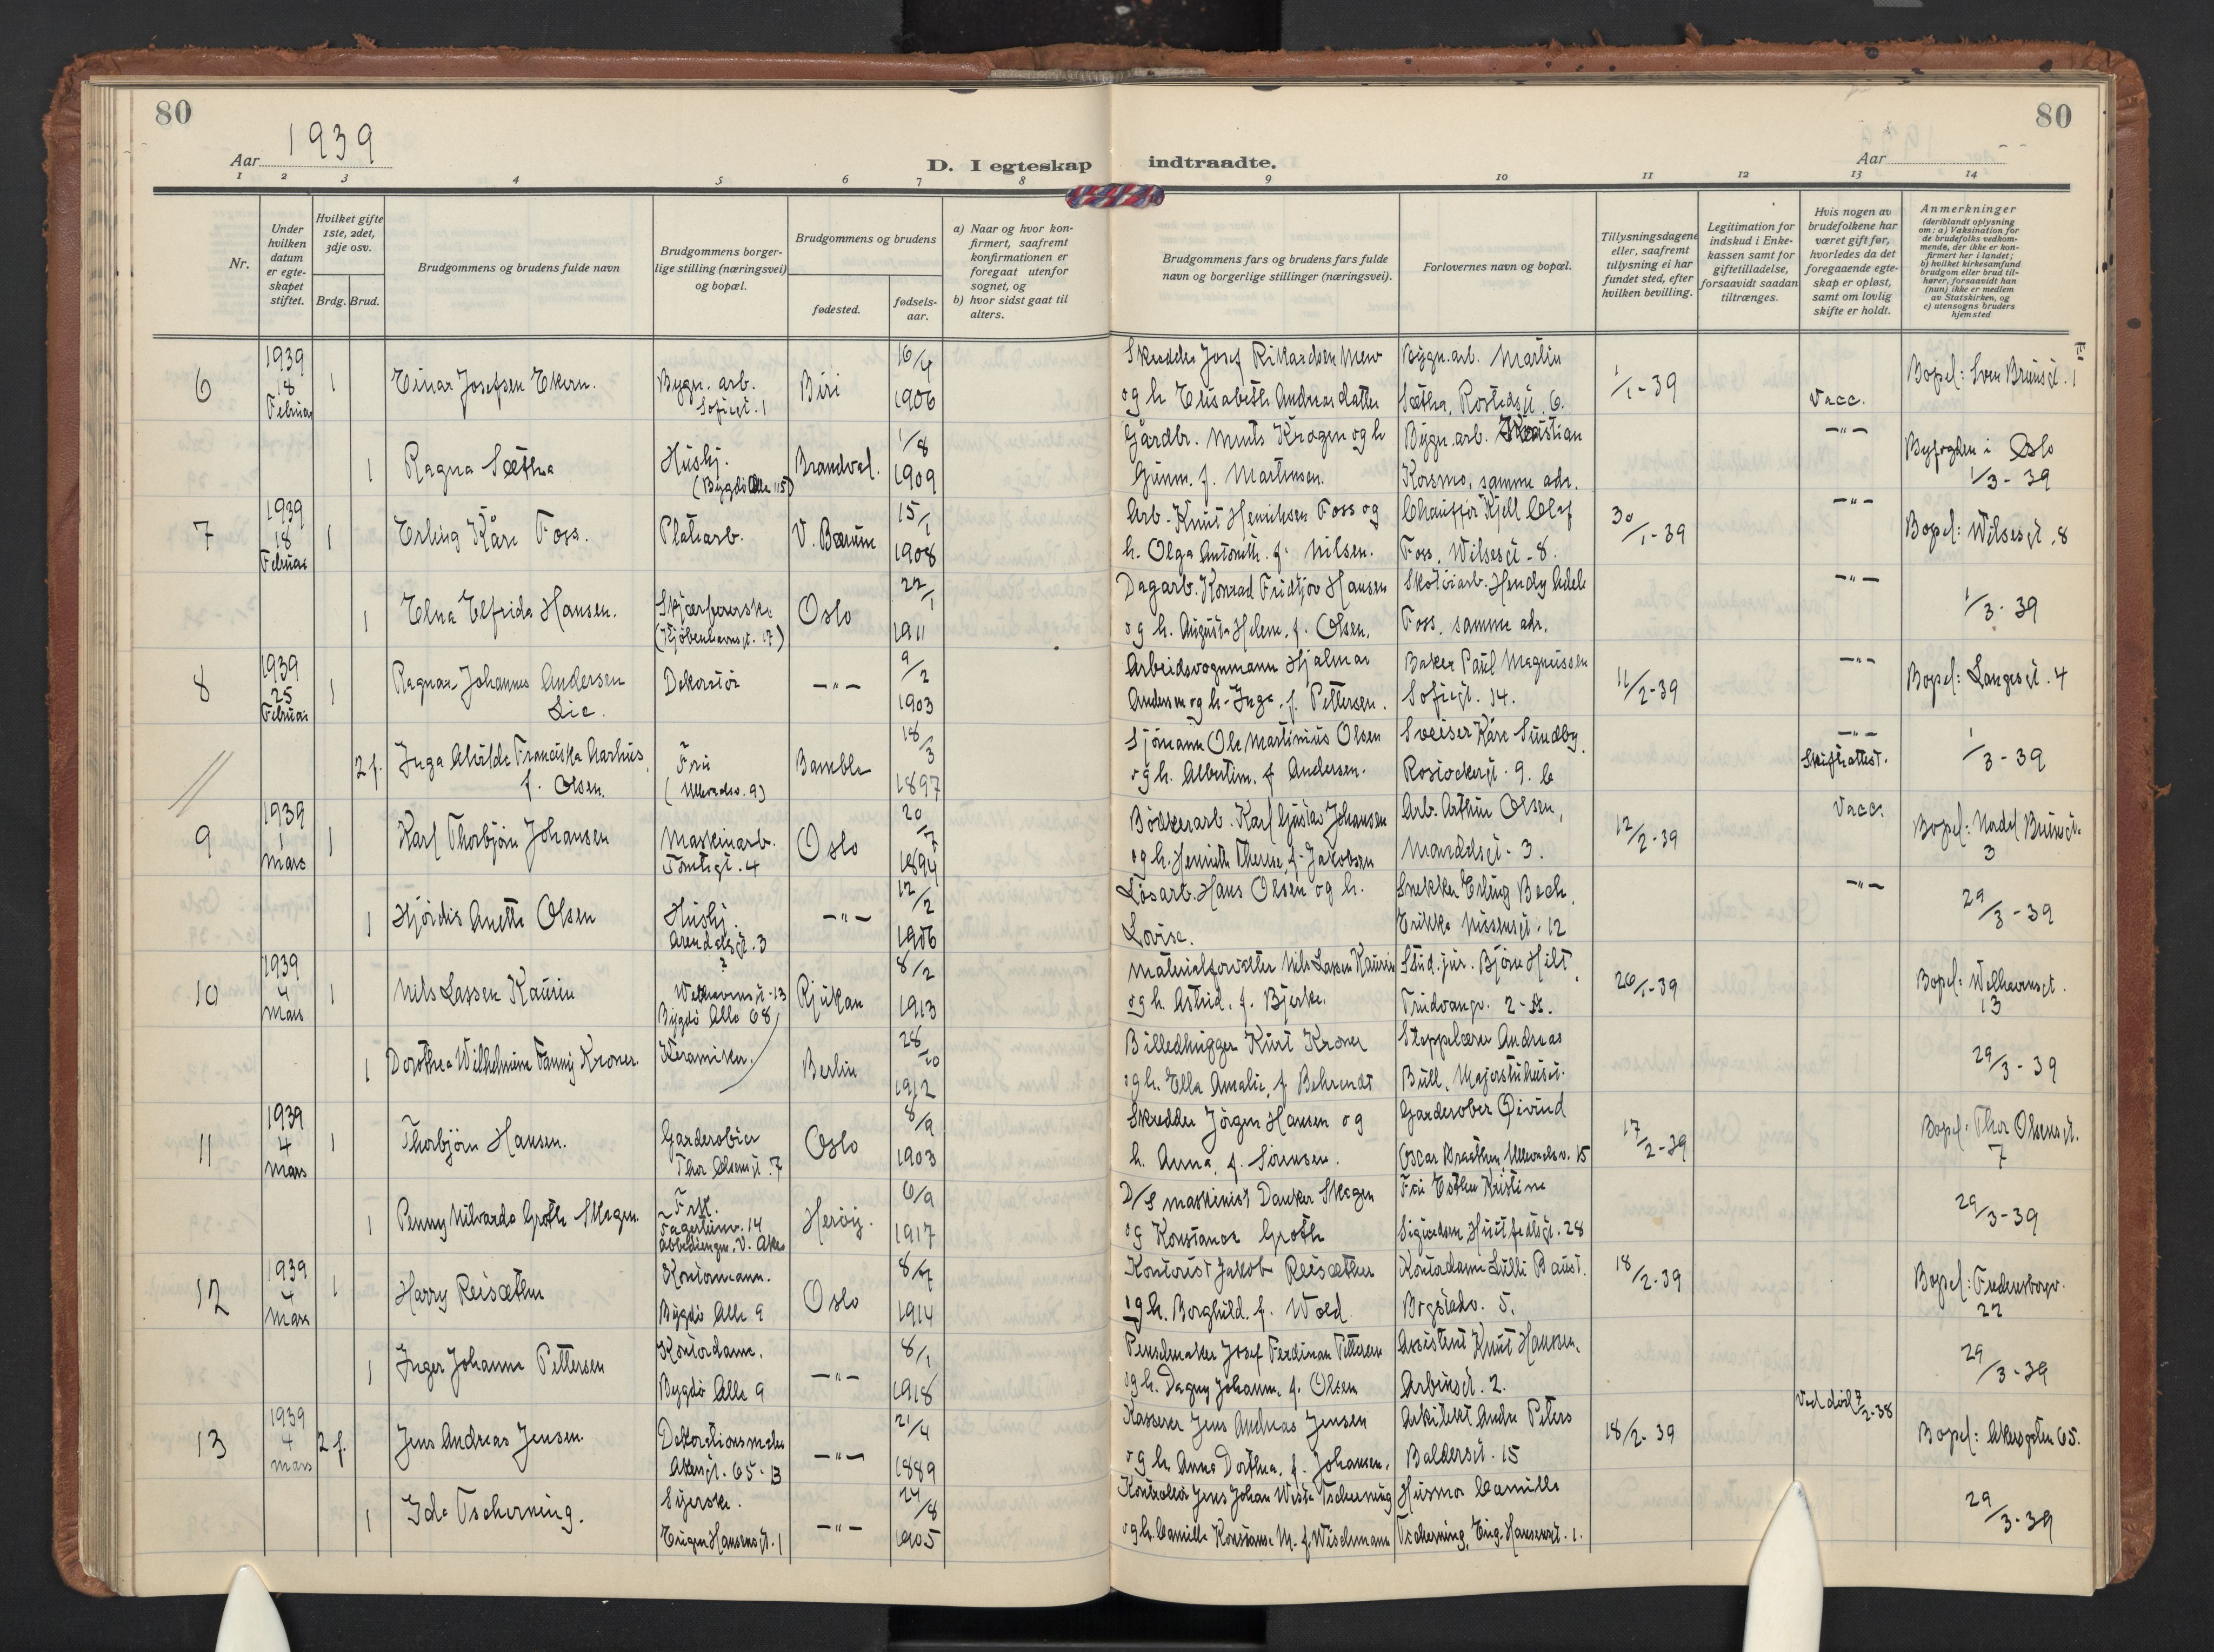 80
80
Aar 1939
D. I egteskap indtraadte.
Aar
1 2 3 4 5 6 7 8 9 10 11 12 13 14
Nr.
Under hvilken datum er egteskapet stiftet.
Hvilket gifte 1ste, 2det, 3dje osv.
Brdg. Brud.
Brudgommens og brudens fulde navn
Brudgommens borgerlige stilling (næringsvei) og bopæl.
Brudgommens og brudens
fødested.
fødselsaar.
a) Naar og hvor konfirmert, saafremt konfirmationen er foregaat utenfor sognet, og
b) hvor sidst gaat til alters.
Brudgommens fars og brudens fars fulde navn og borgerlige stillinger (næringsvei).
Forlovernes navn og bopæl.
Tillysningsdagene eller, saafremt tillysning ei har fundet sted, efter hvilken bevilling.
Legitimation for indskud i Enkekassen samt for giftetilladelse, forsaavidt saadan tiltrænges.
Hvis nogen av brudefolkene har været gift før, hvorledes da det foregaaende egteskap er opløst, samt om lovlig skifte er holdt.
Anmerkninger
(deriblandt oplysning om: a) Vaksination for de brudefolks vedkommende, der ikke er konfirmert her i landet; b) hvilket kirkesamfund brudgom eller brud tilhører, forsaavidt han (hun) ikke er medlem av Statskirken, og c) utensogns bruders hjemsted
6 1939 18 Februar 1 Einar Josefsen Ekern. Bygn. arb. Sofiegt. 1 Biri 16/4 1906
Skredder Josef Rikardsen
og h. Elisabeth Andreasdatter
Bygn. arb. Martin
Sætha, Rostedsgt. 6.
1/1-39 Vacc. Bopel: Sven Brunsgt. 1 III
1 Ragna Sætha Hushj. (Bygdö Alle 115) Brandval. 1/8 1909
Gårdbr. Ments Krogen og h.
Gunni f. Martinsen.
Bygn. arb. Kristian
Korsmo, samme adr.
-"- Byfogden i Oslo 1/3-39
7 1939 18 Februar 1 Erling Kåre Foss. Platearb. V. Bærum 15/1 1908
Arb. Knut Henriksen Foss og
h. Olga Antonette f. Nilsen.
Chauffør Kjell Olaf
Foss, Wilsesgt. 8.
30/1-39 -"- Bopel: Wilsesgt. 8
1 Elna Elfrida Hansen. Skjærferske (Kjöbenhavnsgt. 17) Oslo 22/1 1911
Dagarb. Konrad Fridtjov Hansen
og h. Augusta Helene, f. Olsen.
Skotöiarb. Hendy Adele
Foss, samme adr.
-"- 1/3-39
8 1939 25 Februar 1 Ragnar Johannes Andersen Lie. Dekoratör -"- 9/2 1903
Arbeidsvognmann Hjalmar
Andersen og h. Inga, f. Pettersen.
Baker Paul Magnussen
Sofiegt. 14.
11/2-39 -"- Bopel: Langesgt. 4
2 f. Inga Alvilde Franciska Aarhus, f. Olsen. Frü (Ullevålsv. 9) Bamble 18/3 1897
Sjömann Ole Martinius Olsen
og h. Albertine f. Andersen.
Sveiser Kåre Sundby
Rostockergt. 9. b
-"- Skifteattest. 1/3-39
9 1939 1 Mars 1 Karl Thorbjörn Johansen Maskinarb. Tomtegt. 4 Oslo 20/7 1894
Bödkerarb. Karl Gustav Johansen
og h. Henriette Therese, f. Jakobsen
Arb. Arthur Olsen,
Maridalsgt. 3.
12/2-39 Vacc. Bopel: Nordal Brunsgt. 3
1 Hjördis Anette Olsen Hushj. Arendalsgt. 3 -"- 12/2 1906
Løsarb. Hans Olsen og h.
Lovise.
Snekker Erling Bech,
Erikka Nissensgt. 12
-"- 29/3-39
10 1939 4 Mars 1 Nils Lassen Kaurin ? Welhavensgt. 13 Bygdö Alle 68 Rjukan 8/2 1913
Materialforvalter Nils Lassen Kaurin
og h. Astrid, f. Bjerke.
Stud. jur. Björn Hilt,
Tuidvangv. 2-A.
26/1-39 Bopel: Welhavensgt. 13
1 Dorothea Wilhelmine Fanny Kroner. Keramiker. Berlin 28/10 1912
Billedhugger Kurt Kroner
og h. Ella Amalie, f. Behrendt
Steppelærer Andreas
Bull, Majorstuhuset.
29/3-39
11 1939 4 Mars 1 Thorbjörn Hansen. Garderobier Thor Olsensgt. 7 Oslo 8/9 1903
Skredder Jörgen Hansen og
h. Anna, f. Sörensen.
Garderober Øivind
Oscar Braathen, Ullevaalsv. 15
17/2-39 Bopel: Thor Olsensgt. 7
1 Penny Milvarda Groth Skogen. Frk. Fagerliinv. 14 Abbediengn. V. Aker Heröy. 6/9 1917
D/S maskinist Danker Skogen
og Konstance Groth
Frü Esther Kristine
Sigurdsen, Huitfeldtsgt. 28
29/3-39
12 1939 4 Mars 1 Harry Reisæther Kontormann. Bygdö Alle 9 Oslo 8/7 1914
Kontorist Jakob Reisæther
og h. Borghild. f. Wold.
Kontordame Lulli Baust.
Bogstadv. 5.
18/2-39 Bopel: Fredensborgv. 22
1 Inger Johanne Pettersen Kontordame. Bygdö Alle 9 -"- 8/1 1918
Penselmaker Josef Ferdinan Pettersen
og h. Dagny Johanne f. Olsen
Assistent Knut Hansen.
Arbinsgt. 2.
29/3-39
13 1939 4 Mars 2 f. Jens Andreas Jensen. Dekorationsmaler Akersgt. 65-B -"- 21/4 1889
Kasserer Jens Andreas Jensen
og h. Anna Dorthea, f. Johansen.
Arkitekt Andr. Peters
Baldersgt. 15
18/2-39 Ved död 7/2-38 Bopel: Akersgaten 65.
1 Ida Tscherning. Syerske. Eugen Hansensgt. 1 -"- 24/8 1905
Kontrollör Jens Johan Tscherning
og h. Camilla Konstance M. f. Wischmann
Husmor Camilla
Tscherning, Eug. Hansensgt. 1.
29/3-39